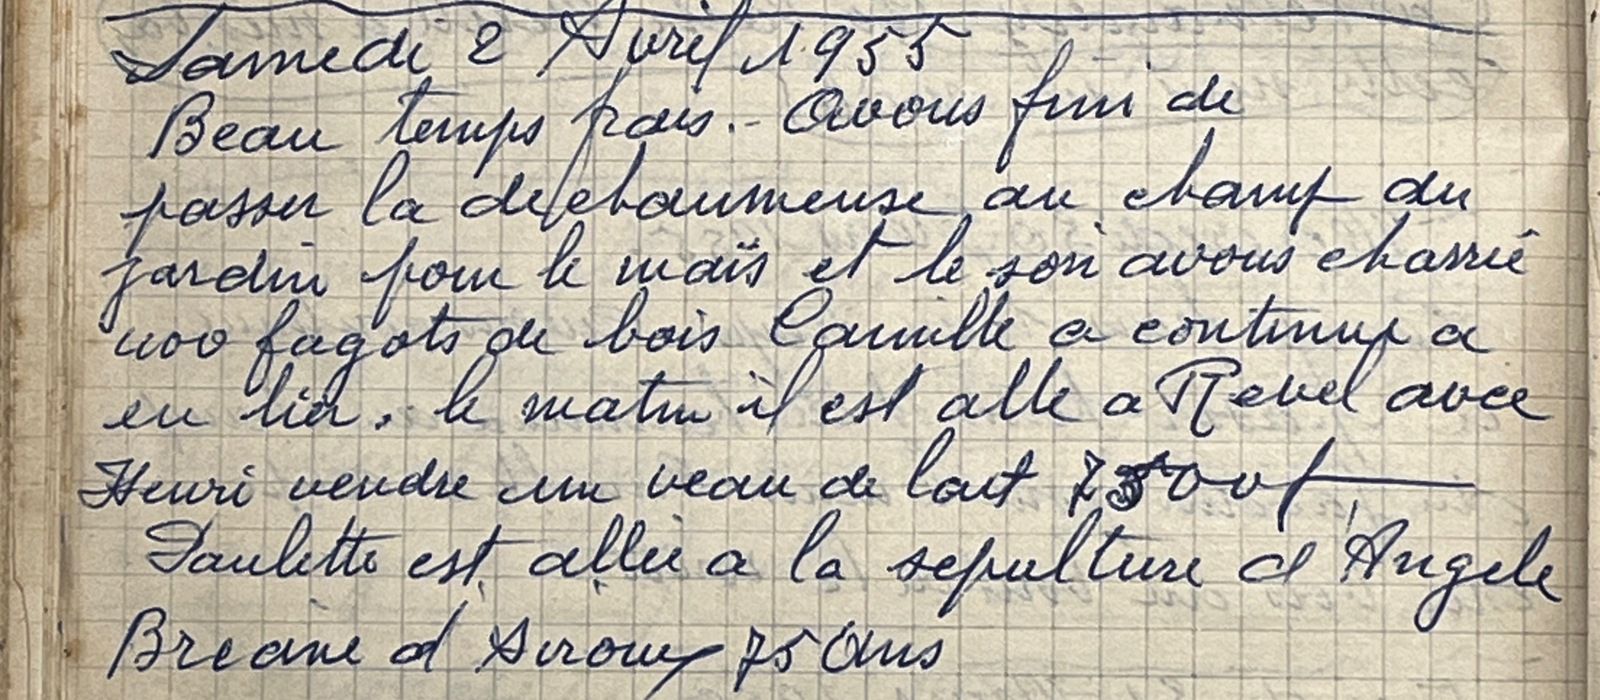 Samedi 2 Avril 1955
Beau temps frais. - Avons fini de
passer la dechaumeuse au champ du
jardin pour le maïs et le soir avons charrié
400 fagots de bois Camille a continué a
en lier. le matin il est allé a Revel avec
Henri vendre un veau de lait 7500f
Paulette est allée a la sepulture d'Angele
d'Airoux 75 Ans